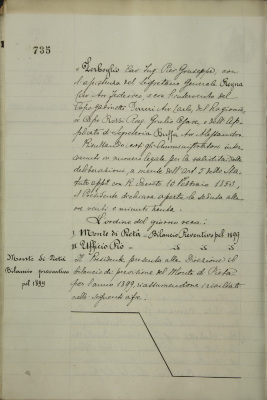 735
e Zerboglio Cav. Ing. Pier Giuseppe, con
l'assistenza del Segretario Generale Pugna
Cav. Avv. Federico, e con l'intervento del
Capo gabinetto Ferreri Avv. Carlo, del Ragioniere
Capo Rossi Rag. Giulio Cesare, e dell'Ap-
plicato di Segreteria Buffa Avv. Alessandro.
Risultando, così gli Amministratori inter-
venuti in numero legale per la validità delle
deliberazioni, a mente dell'art. 7 dello Sta-
tuto appr. con R. Decreto 10 Febbraio 1893,
il Presidente dichiara aperta la seduta alle
ore venti e minuti trenta.
L'ordine del giorno reca:
I Monte di Pietà - Bilancio Preventivo pel 1899
II Ufficio Pio - id. id. id.
Monte di Pietà
Bilancio preventivo
pel 1899
Il Presidente presenta alla Direzione il
bilancio di previsione del Monte di Pietà
per l'anno 1899, riassumendone i risultati
nelle seguenti cifre.